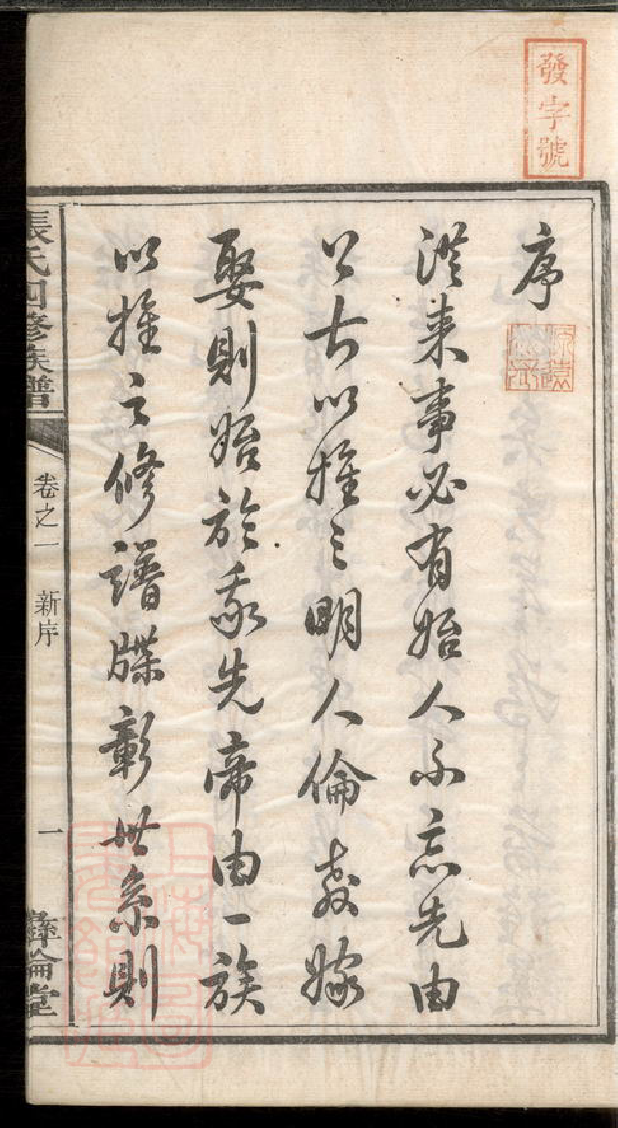 發字號
序
從來事必有始人不忘先由
以古以推之明人倫教嫁
娶則始於羲先帝由一族
以推之修譜牒彰世系則
張氏四修族譜
卷之一 新序
一
彝倫堂